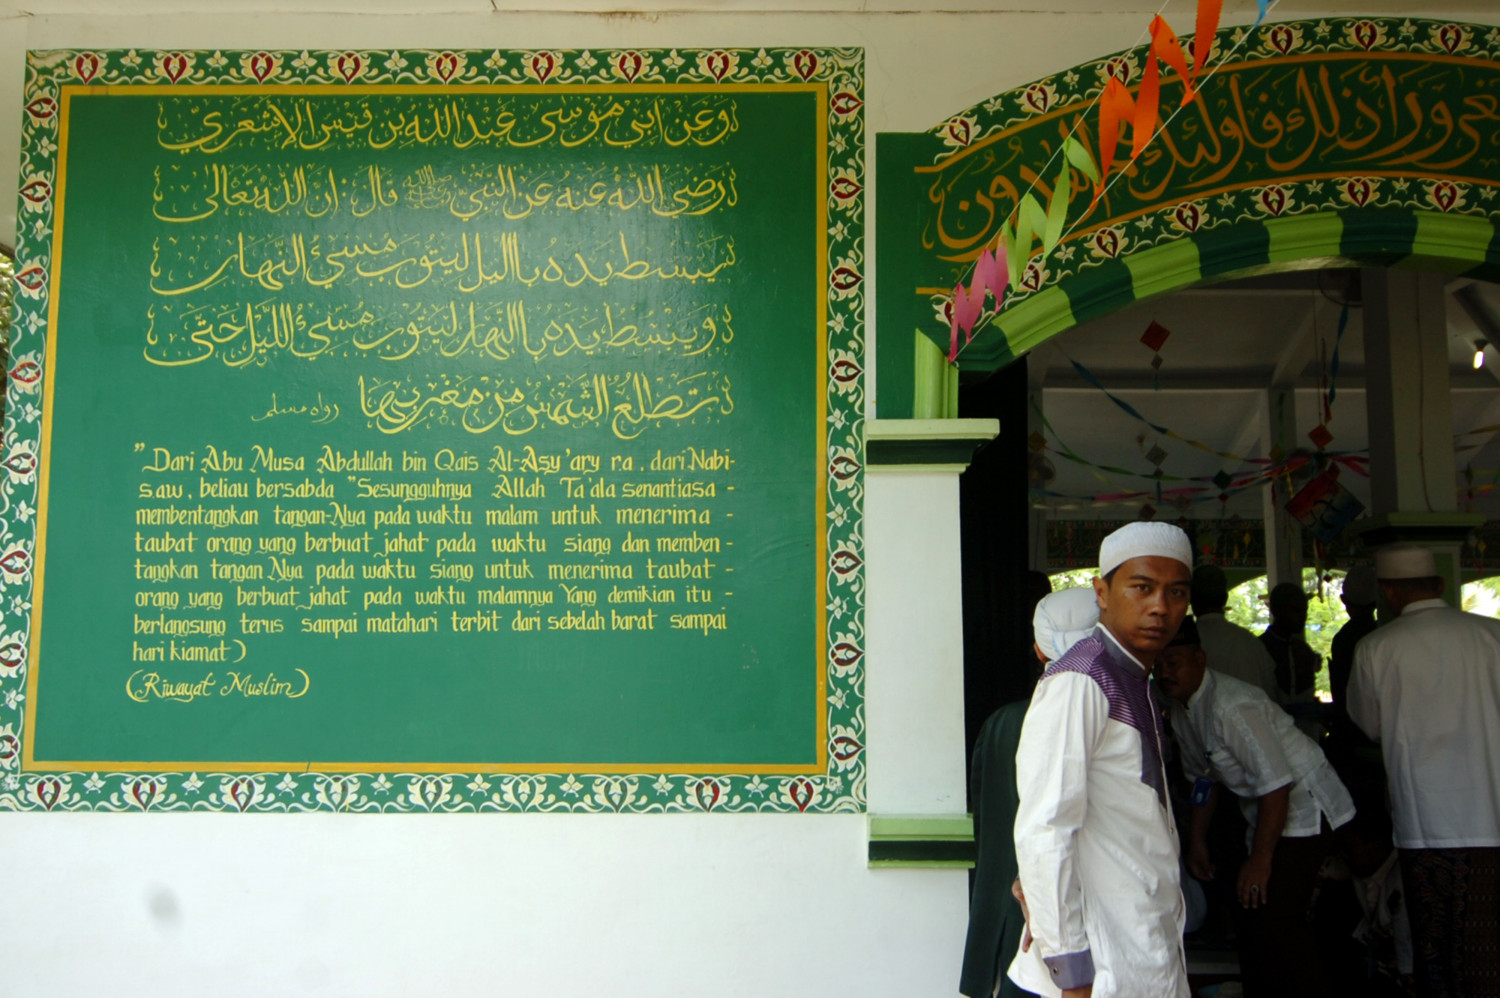 وَعَنْ اَبِيْ مُوْسَى عَبْدِ اللهِ بْنِ قَيْسٍ الْاَشْعَرِيّ
رَضِيَ اللهُ عَنْهُ عَنِ النَّبِيّ ﷺ قَالَ اِنَّ اللهَ تَعَالَى
يَبْسُطُ يَدَهُ بِااليل لِيَتُوْبَ مُسِيْئُ النَّهَارِ
وَيَبْسُطُ يَدَهُ بِاالنَّهَارِ لِيَتُوْبَ مُسِيْئُ اللَّيْلِ حَتَّى
تَطْلُعَ الشَّمْسُ مِنْ مَغْرِبِهَا رواه مسلم
"Dari Abu Musa Abdullah bin Qais Al-Asy'ary r.a., dari Nabi-
s.a.w., beliau bersabda "Sesungguhnya Allah Ta'ala senantiasa -
membentangkan tangan-Nya pada waktu malam untuk menerima -
taubat orang yang berbuat jahat pada waktu siang dan memben -
tangkan tangan Nya pada waktu siang untuk menerima taubat -
orang yang berbuat jahat pada waktu malamnya Yang demikian itu -
berlangsung terus sampai matahari terbit dari sebelah barat sampai
hari kiamat)
(Riwayat Muslim)
وراء ذلك فاولئك